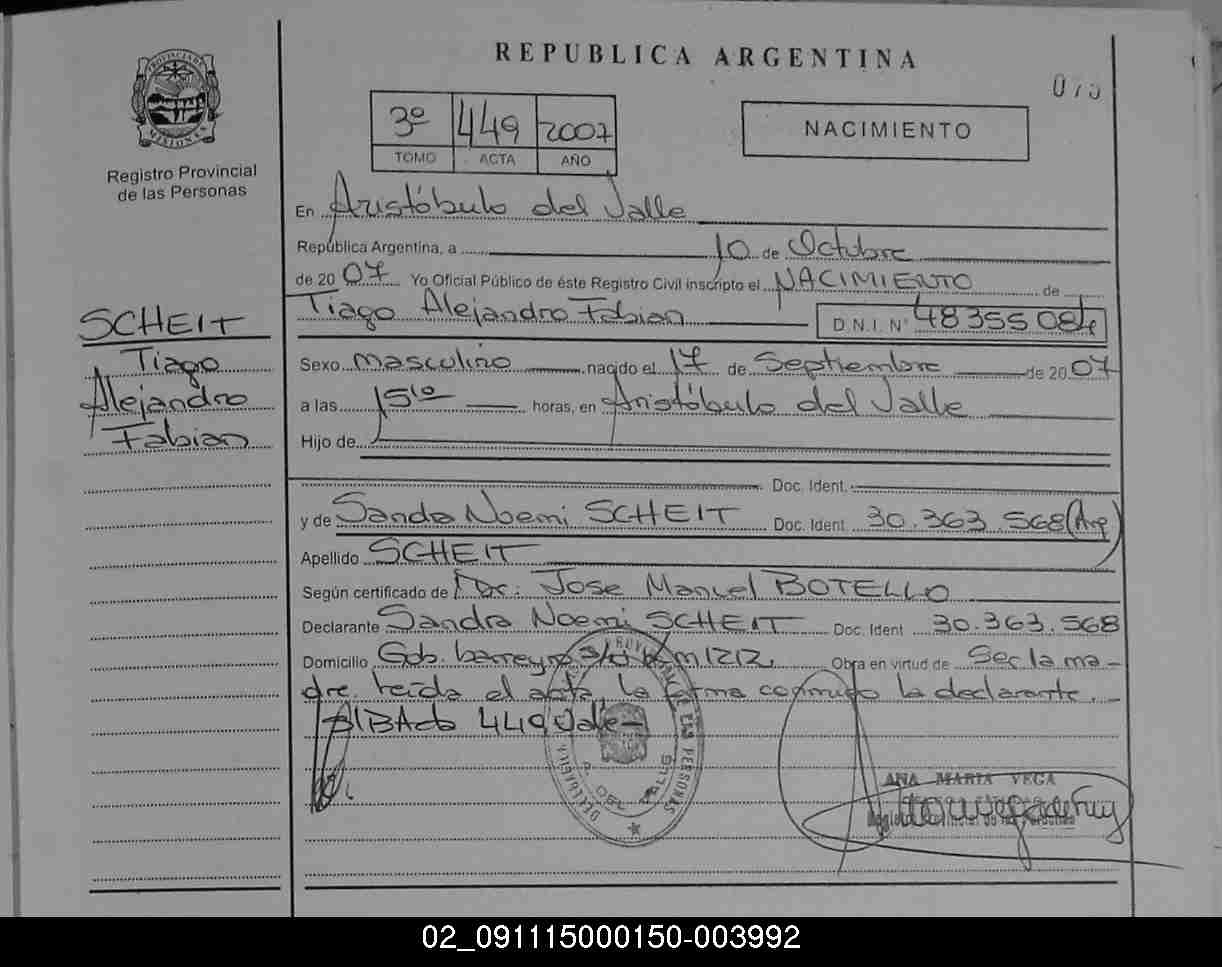 REPUBLICA ARGENTINA
PROVINCIA DE MISIONES
Registro Provincial
de las Personas
3º 449 2007
TOMO ACTA AÑO
NACIMIENTO
075
En Aristóbulo del Valle
República Argentina, a 10 de Octubre
de 2007 Yo Oficial Público de éste Registro Civil inscripto el NACIMIENTO de
Tiago Alejandro Fabian D.N.I. Nº 48355084
SCHEIT
Tiago
Alejandro
Fabian
Sexo masculino nacido el 17 de Septiembre de 2007
a las 15¹⁰ horas, en Aristóbulo del Valle
Hijo de
Doc. Ident.
y de Sandra Noemi SCHEIT Doc. Ident. 30.363.568 (Arg)
Apellido SCHEIT
Según certificado de Dr. Jose Manuel BOTELLO
Declarante Sandra Noemi SCHEIT Doc. Ident 30.363.568
Domicilio Gob. barreyro s/n Km 1212 Obra en virtud de Ser la ma-
dre. Leída el acta, la firma conmigo la declarante.
449 Valle-
ANA MARIA VEGA
02_091115000150-003992